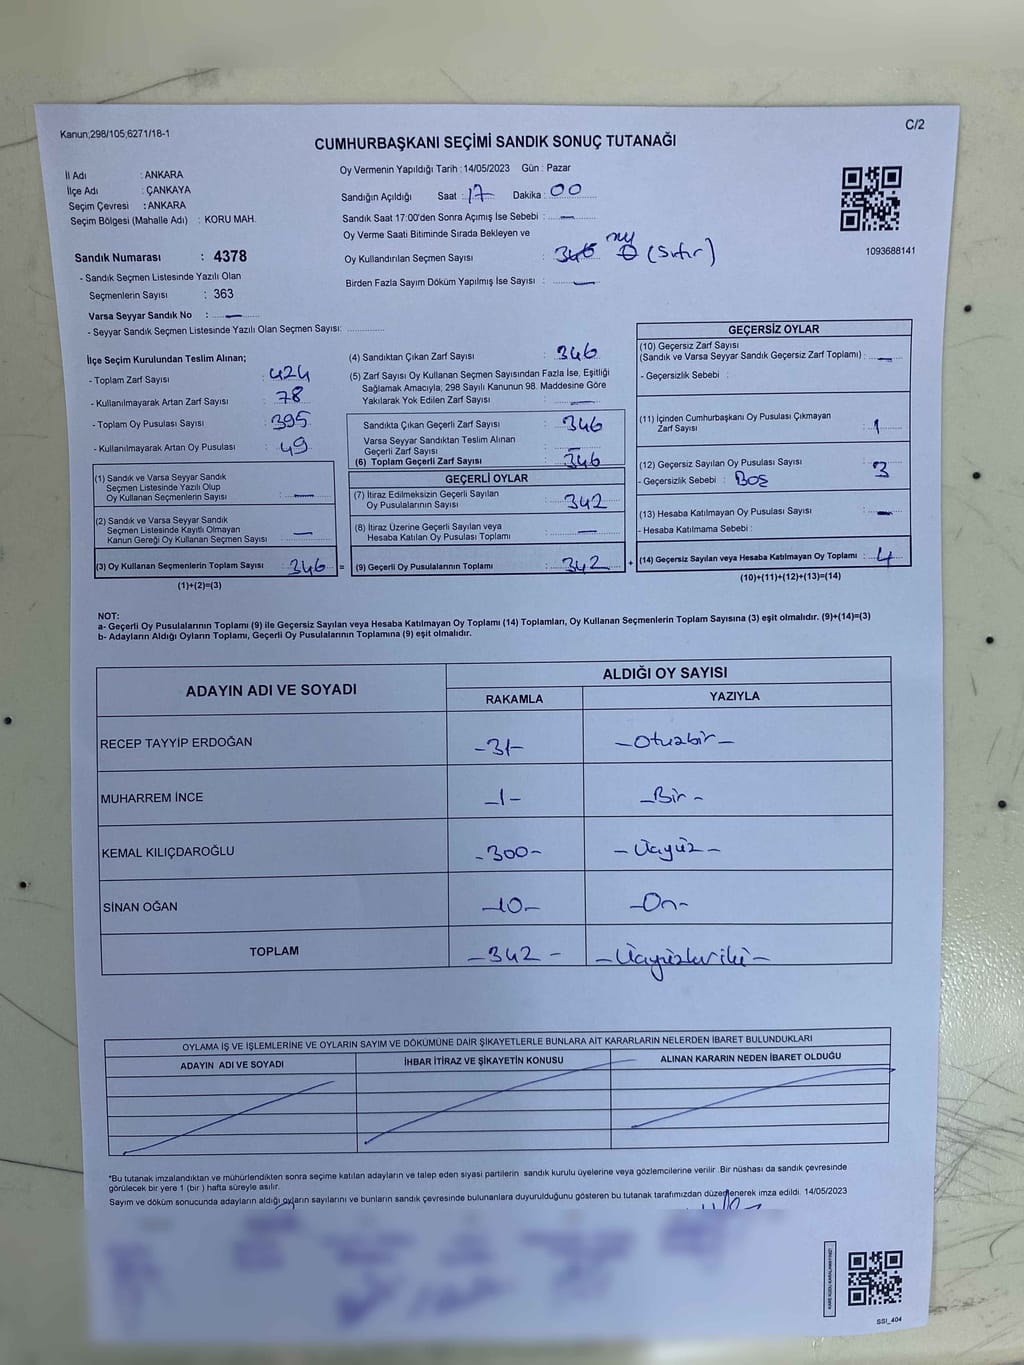 Kanun;298/105;6271/18-1
C/2
CUMHURBAŞKANI SEÇİMİ SANDIK SONUÇ TUTANAĞI
İl Adı : ANKARA
İlçe Adı : ÇANKAYA
Seçim Çevresi : ANKARA
Seçim Bölgesi (Mahalle Adı) : KORU MAH.
Oy Vermenin Yapıldığı Tarih : 14/05/2023 Gün : Pazar
Sandığın Açıldığı Saat : 17 Dakika : 00
Sandık Saat 17:00'den Sonra Açımış İse Sebebi : —
Oy Verme Saati Bitiminde Sırada Bekleyen ve
Oy Kullandırılan Seçmen Sayısı : 346 0 (Sıfır)
Birden Fazla Sayım Döküm Yapılmış İse Sayısı : —
1093688141
Sandık Numarası : 4378
- Sandık Seçmen Listesinde Yazılı Olan
Seçmenlerin Sayısı : 363
Varsa Seyyar Sandık No : —
- Seyyar Sandık Seçmen Listesinde Yazılı Olan Seçmen Sayısı:
İlçe Seçim Kurulundan Teslim Alınan;
- Toplam Zarf Sayısı : 424
- Kullanılmayarak Artan Zarf Sayısı : 78
- Toplam Oy Pusulası Sayısı : 395
- Kullanılmayarak Artan Oy Pusulası : 49
(1) Sandık ve Varsa Seyyar Sandık
Seçmen Listesinde Yazılı Olup
Oy Kullanan Seçmenlerin Sayısı : —
(2) Sandık ve Varsa Seyyar Sandık
Seçmen Listesinde Kayıtlı Olmayan
Kanun Gereği Oy Kullanan Seçmen Sayısı : —
(3) Oy Kullanan Seçmenlerin Toplam Sayısı : 346 =
(1)+(2)=(3)
(4) Sandıktan Çıkan Zarf Sayısı : 346
(5) Zarf Sayısı Oy Kullanan Seçmen Sayısından Fazla İse, Eşitliği
Sağlamak Amacıyla, 298 Sayılı Kanunun 98. Maddesine Göre
Yakılarak Yok Edilen Zarf Sayısı : —
Sandıkta Çıkan Geçerli Zarf Sayısı : 346
Varsa Seyyar Sandıktan Teslim Alınan
Geçerli Zarf Sayısı : —
(6) Toplam Geçerli Zarf Sayısı : 346
GEÇERLİ OYLAR
(7) İtiraz Edilmeksizin Geçerli Sayılan
Oy Pusulalarının Sayısı : 342
(8) İtiraz Üzerine Geçerli Sayılan veya
Hesaba Katılan Oy Pusulası Toplamı : —
(9) Geçerli Oy Pusulalarının Toplamı : 342 +
GEÇERSİZ OYLAR
(10) Geçersiz Zarf Sayısı
(Sandık ve Varsa Seyyar Sandık Geçersiz Zarf Toplamı) : —
- Geçersizlik Sebebi :
(11) İçinden Cumhurbaşkanı Oy Pusulası Çıkmayan
Zarf Sayısı : 1
(12) Geçersiz Sayılan Oy Pusulası Sayısı : 3
- Geçersizlik Sebebi : Boş
(13) Hesaba Katılmayan Oy Pusulası Sayısı : —
- Hesaba Katılmama Sebebi :
(14) Geçersiz Sayılan veya Hesaba Katılmayan Oy Toplamı : 4
(10)+(11)+(12)+(13)=(14)
NOT:
a- Geçerli Oy Pusulalarının Toplamı (9) ile Geçersiz Sayılan veya Hesaba Katılmayan Oy Toplamı (14) Toplamları, Oy Kullanan Seçmenlerin Toplam Sayısına (3) eşit olmalıdır. (9)+(14)=(3)
b- Adayların Aldığı Oyların Toplamı, Geçerli Oy Pusulalarının Toplamına (9) eşit olmalıdır.
ADAYIN ADI VE SOYADI
ALDIĞI OY SAYISI
RAKAMLA YAZIYLA
RECEP TAYYİP ERDOĞAN -31- -Otuzbir-
MUHARREM İNCE -1- -Bir-
KEMAL KILIÇDAROĞLU -300- -Üçyüz-
SİNAN OĞAN -10- -On-
TOPLAM -342- -Üçyüzkırkiki-
OYLAMA İŞ VE İŞLEMLERİNE VE OYLARIN SAYIM VE DÖKÜMÜNE DAİR ŞİKAYETLERLE BUNLARA AİT KARARLARIN NELERDEN İBARET BULUNDUKLARI
ADAYIN ADI VE SOYADI İHBAR İTİRAZ VE ŞİKAYETİN KONUSU ALINAN KARARIN NEDEN İBARET OLDUĞU
*Bu tutanak imzalandıktan ve mühürlendikten sonra seçime katılan adayların ve talep eden siyasi partilerin sandık kurulu üyelerine veya gözlemcilerine verilir. Bir nüshası da sandık çevresinde
görülecek bir yere 1 (bir ) hafta süreyle asılır.
Sayım ve döküm sonucunda adayların aldığı oyların sayılarını ve bunların sandık çevresinde bulunanlara duyurulduğunu gösteren bu tutanak tarafımızdan düzenlenerek imza edildi. 14/05/2023
SSI_404